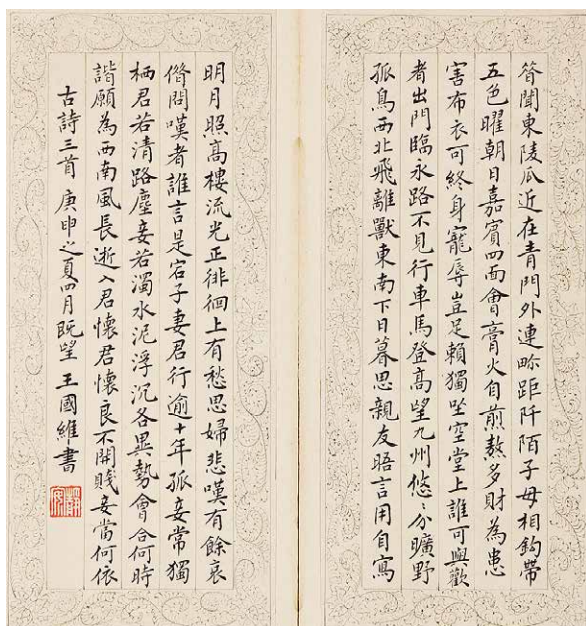 昔聞東陵瓜近在青門外連畛距阡陌子母相鈎帶
五色曜朝日嘉賓四面會膏火自煎熬多財為患
害布衣可終身寵辱豈足賴獨坐空堂上誰可與歡
者出門臨永路不見行車馬登高望九州悠〻分曠野
孤鳥西北飛離獸東南下日暮思親友晤言用自寫
明月照高樓流光正徘徊上有愁思婦悲嘆有餘哀
借問嘆者誰言是宕子妻君行逾十年孤妾常獨
栖君若清路塵妾若濁水泥浮沉各異勢會合何時
諧願為西南風長逝入君懷君懷良不開賤妾當何依
古詩三首 庚申之夏四月既望 王國維書
靜安